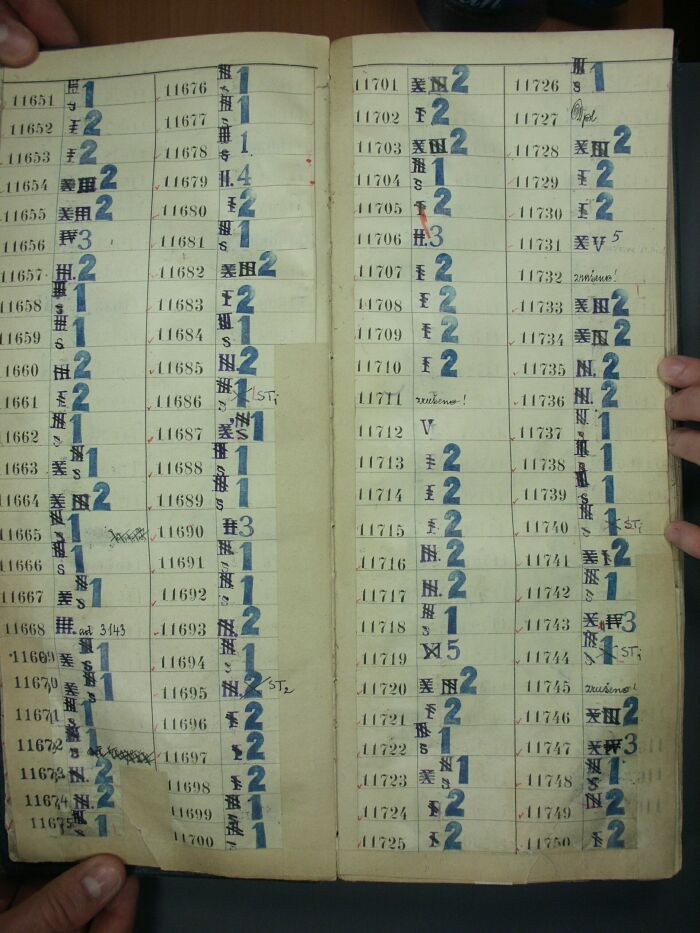 11651 1
11652 I 2
11653 I 2
11654 X III 2
11655 X III 2
11656 IV 3
11657 III. 2
11658 s 1
11659 s 1
11660 III 2
11661 I 2
11662 s 1
11663 X s 1
11664 X III 2
11665 s 1
11666 s 1
11667 X 1
11668 III. ad 3143
11669 X s 1
11670 X s 1
11671 s 1
11672 s 1
11673 2
11674 2
11675 s 1
11676 s 1
11677 s 1
11678 s 1
11679 II. 4
11680 I 2
11681 s 1
11682 X III 2
11683 I 2
11684 s 1
11685 III. 2
11686 s 1 ST1
11687 X s 1
11688 s 1
11689 s 1
11690 II 3
11691 s 1
11692 s 1
11693 2
11694 s 1
11695 2 ST2
11696 I 2
11697 I 2
11698 I 2
11699 s 1
11700 s 1
11701 X III 2
11702 I 2
11703 X III 2
11704 s 1
11705 I 2
11706 II. 3
11707 I 2
11708 I 2
11709 I 2
11710 I 2
11711 zrušeno!
11712 V
11713 I 2
11714 I 2
11715 I 2
11716 III. 2
11717 III. 2
11718 s 1
11719 XI 5
11720 X III 2
11721 I 2
11722 s 1
11723 X s 1
11724 I 2
11725 I 2
11726 s 1
11727
11728 X III 2
11729 I 2
11730 I 2
11731 X V 5
11732 zrušeno!
11733 X III 2
11734 X III 2
11735 III. 2
11736 III. 2
11737 s 1
11738 s 1
11739 s 1
11740 s ST1
11741 X I 2
11742 s 1
11743 X IV 3
11744 s 1 ST1
11745 zrušeno!
11746 X III 2
11747 X IV 3
11748 s 1
11749 2
11750 I 2